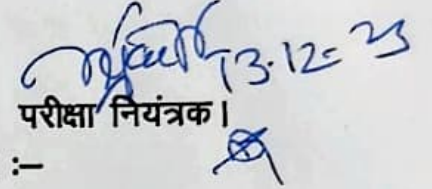 13.12.23
परीक्षा नियंत्रक।
:–